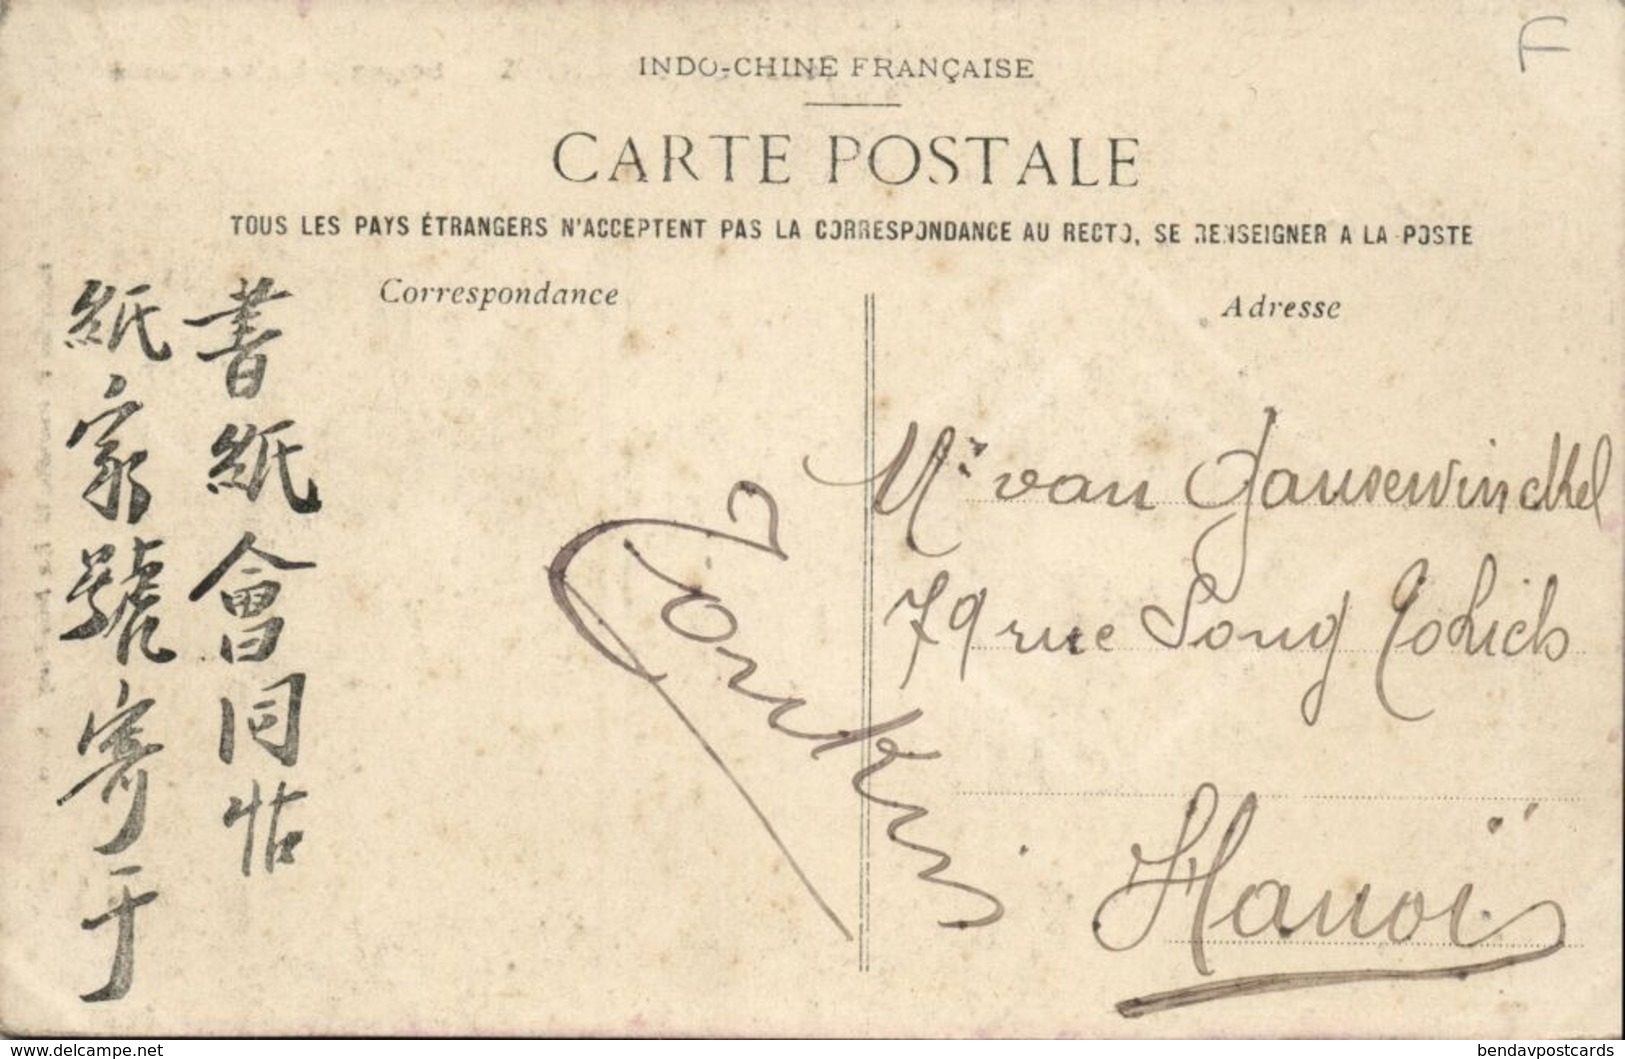 INDO-CHINE FRANÇAISE
F
CARTE POSTALE
TOUS LES PAYS ÉTRANGERS N'ACCEPTENT PAS LA CORRESPONDANCE AU RECTO, SE RENSEIGNER A LA POSTE
Correspondance
Adresse
書紙會同帖
紙家號寄于
Mr van
79 rue
Hanoï
Tonkin
www.delcampe.net
bendavpostcards